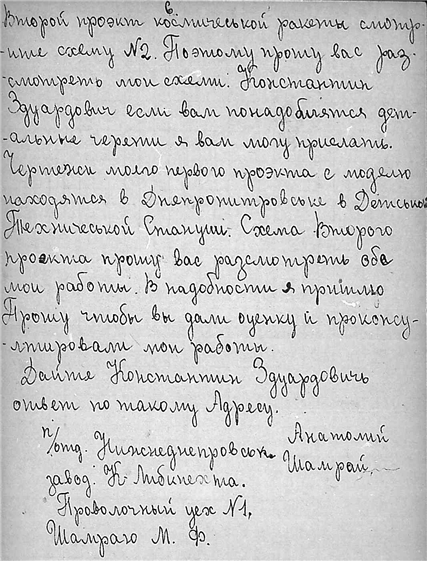 Второй проэкт космической ракеты смотр-
-ите схему N2. Поэтому прошу вас раз-
-смотреть мои схеми. Константин
Эдуардович если вам понадоблятся дет-
-альные черети я вам могу прислать.
Чертежи моего первого проэкта с моделю
находятся в Днепропитровське в Детськой
Технической Станции. Схема Второго
проекта прошу вас разсмотреть обе
мои работы. В надобности я пришлю
Прошу чтобы вы дали оценку и проконсу-
-лтировали мои работы.
Дайте Константин Эдуардовичь
ответ по такому Адресу.
п/отд. Нижнеднепровськ. Анатолий
завод. К. Либкнехта. Шамрай.
Проволочный цех N1,
Шамраю М. Ф.